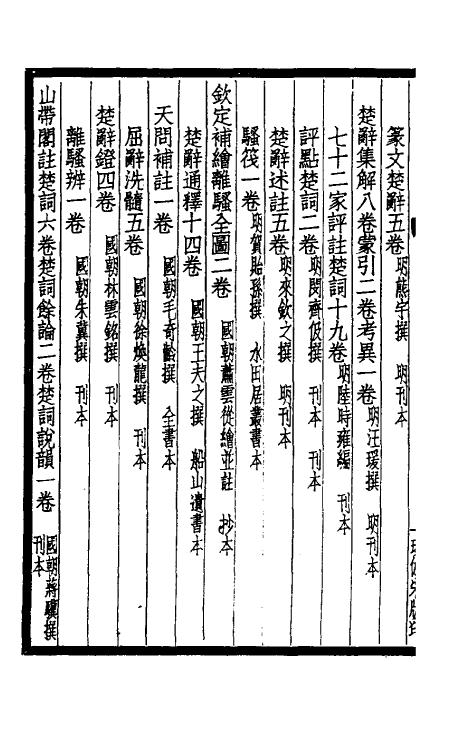 篆文楚辭五卷 明熊宇撰 明刊本
楚辭集解八卷蒙引二卷考異一卷 明汪瑗撰 明刊本
七十二家評註楚詞十九卷 明陸時雍編 刊本
評點楚詞二卷 明閔齊伋撰 刊本 刊本
楚辭述註五卷 明來欽之撰 明刊本
騷筏一卷 明賀貽孫撰 水田居叢書本
欽定補繪離騷全圖二卷 國朝蕭雲從繪並註 抄本
楚辭通釋十四卷 國朝王夫之撰 船山遺書本
天問補註一卷 國朝毛奇齡撰 全書本
屈辭洗髓五卷 國朝徐煥龍撰 刊本
楚辭鐙四卷 國朝林雲銘撰 刊本
離騷辨一卷 國朝朱冀撰 刊本
山帶閣註楚詞六卷楚詞餘論二卷楚詞說韻一卷 國朝蔣驥撰 刊本